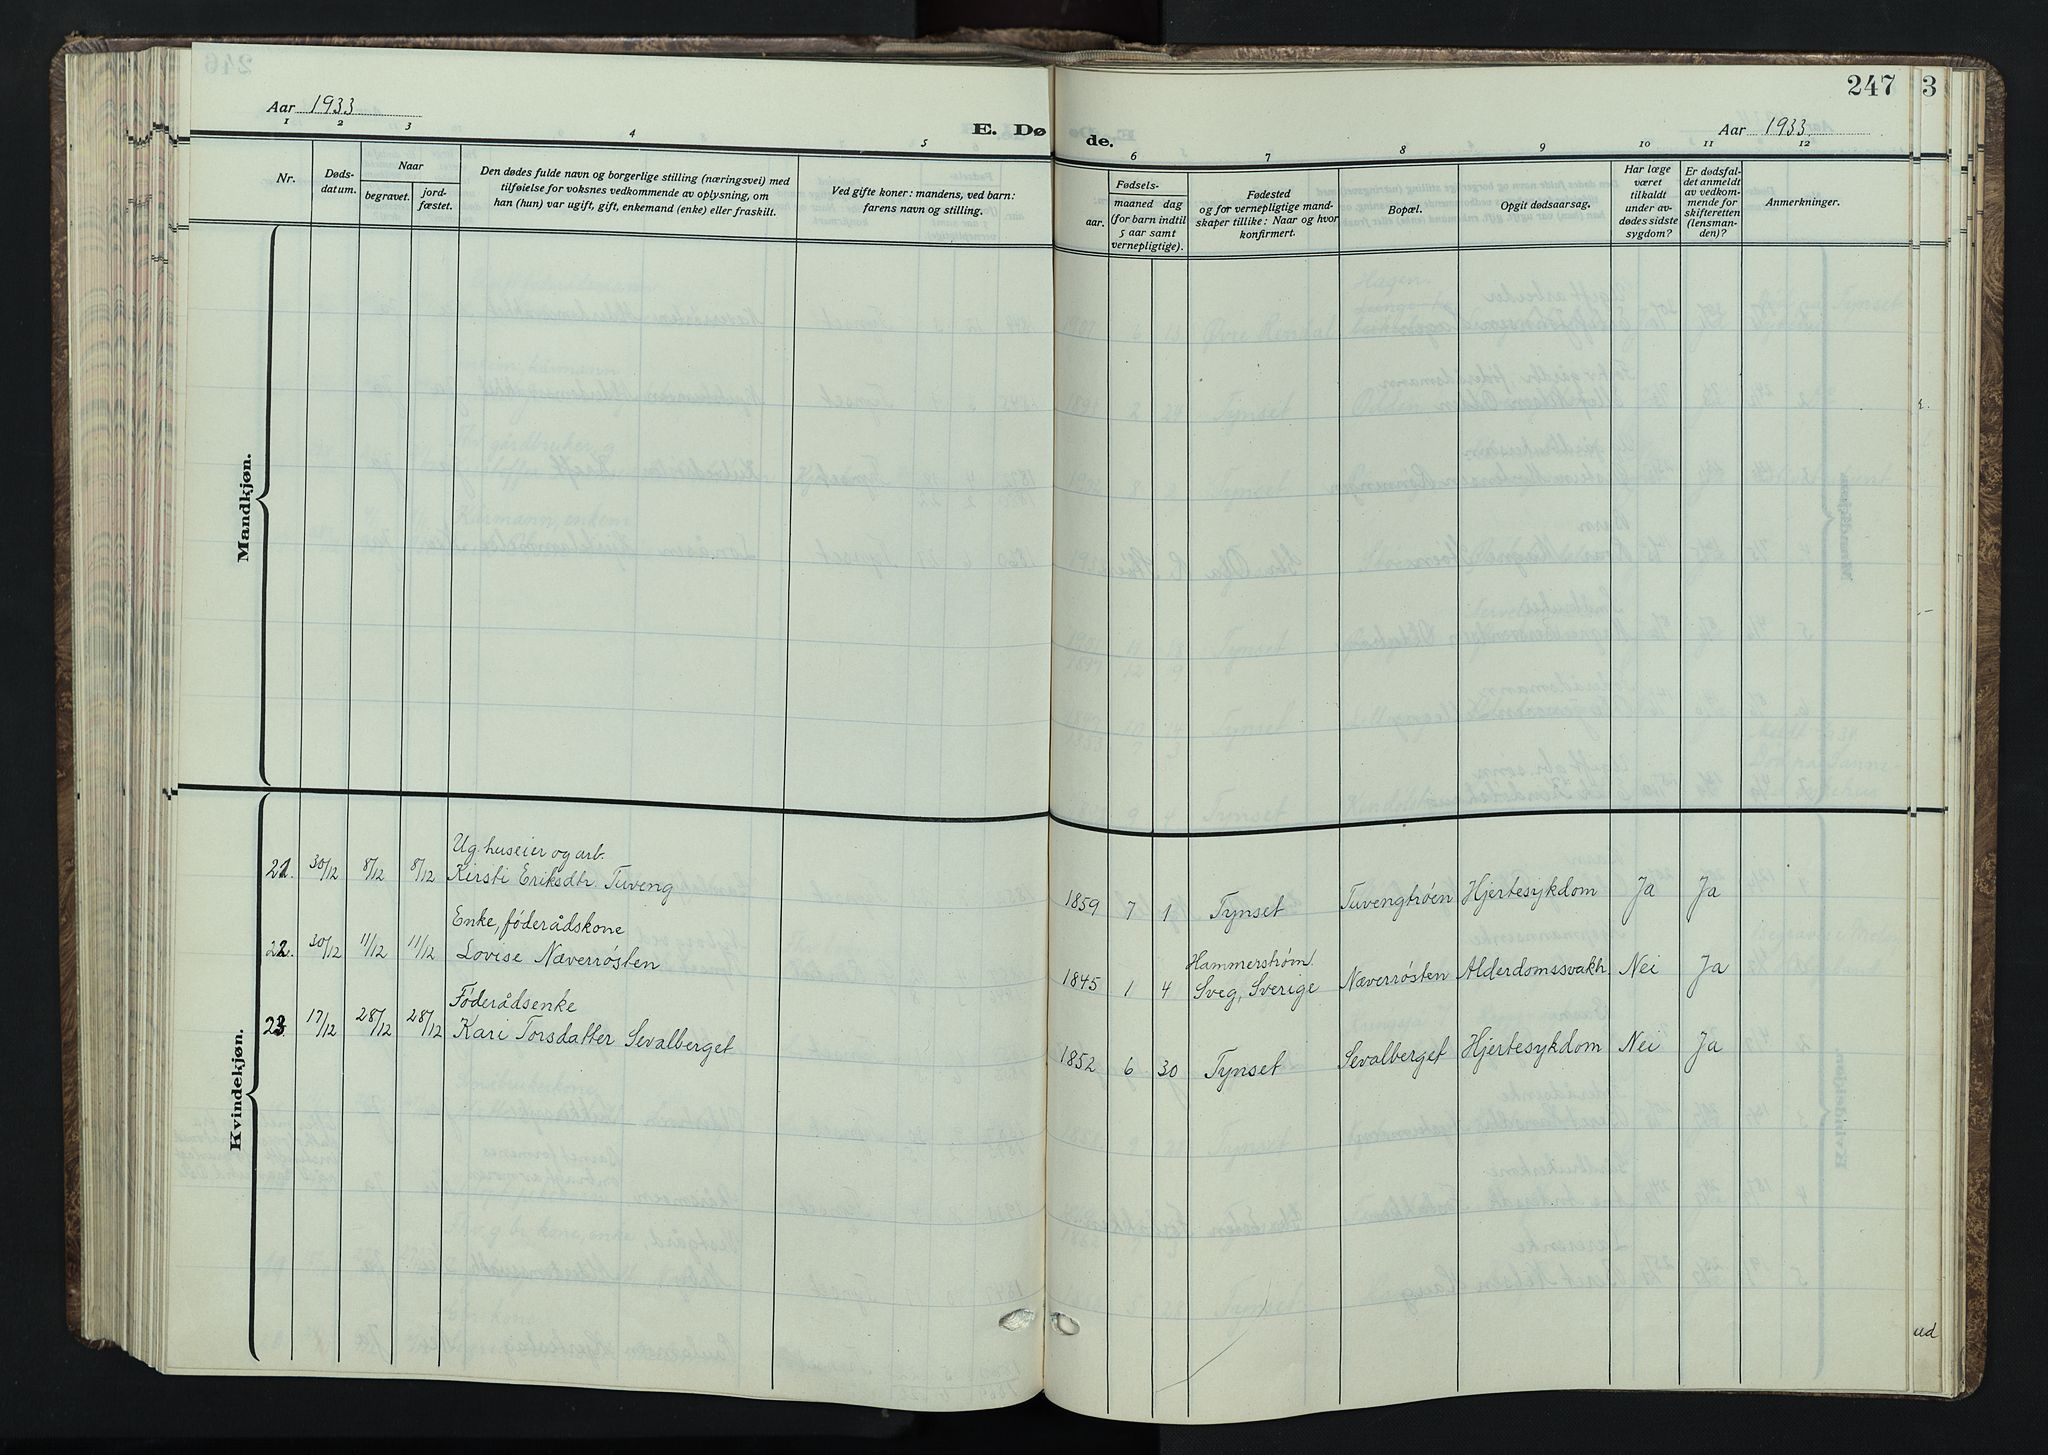 247
3
Aar 1933
Aar 1933
E. Dø
de.
1 2 3 4 5 6 7 8 9 10 11 12
Nr.
Døds-
datum.
Naar
begravet.
jord-
fæstet.
Den dødes fulde navn og borgerlige stilling (næringsvei) med
tilføielse for voksnes vedkommende av oplysning, om
han (hun) var ugift, gift, enkemand (enke) eller fraskilt.
Ved gifte koner: mandens, ved barn:
farens navn og stilling.
Fødsels-
aar.
maaned dag
(for barn indtil
5 aar samt
vernepligtige).
Fødested
og for vernepligtige mand-
skaper tillike: Naar og hvor
konfirmert.
Bopæl.
Opgit dødsaarsag.
Har læge
været
tilkaldt
under av-
dødes sidste
sygdom?
Er dødsfal-
det anmeldt
av vedkom-
mende for
skifteretten
(lensman-
den)?
Anmerkninger.
Mandkjøn.
Kvindekjøn.
Ug. huseier og arb.
21. 30/12 8/12 8/12 Kirsti Eriksdtr. Tuveng 1859 7 1 Tynset Tuvengtrøen Hjertesykdom Ja Ja
Enke, føderådskone
22. 30/12 11/12 11/12 Lovise Næverrøsten 1845 1 4 Hammerstrøm. Næverrøsten Alderdomssvakh. Nei Ja
Sveg, Sverige
Føderådsenke
23. 17/12 28/12 28/12 Kari Torsdatter Sevalberget 1852 6 30 Tynset Sevalberget Hjertesykdom Nei Ja
ud